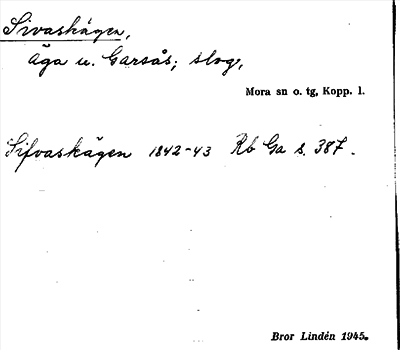 Sivashágen,
äga u. Garsås; slog,
Mora sn o. tg, Kopp. l.
Sifvaskägen 1842-43 Rb Ga s. 387.
Bror Lindén 1945.